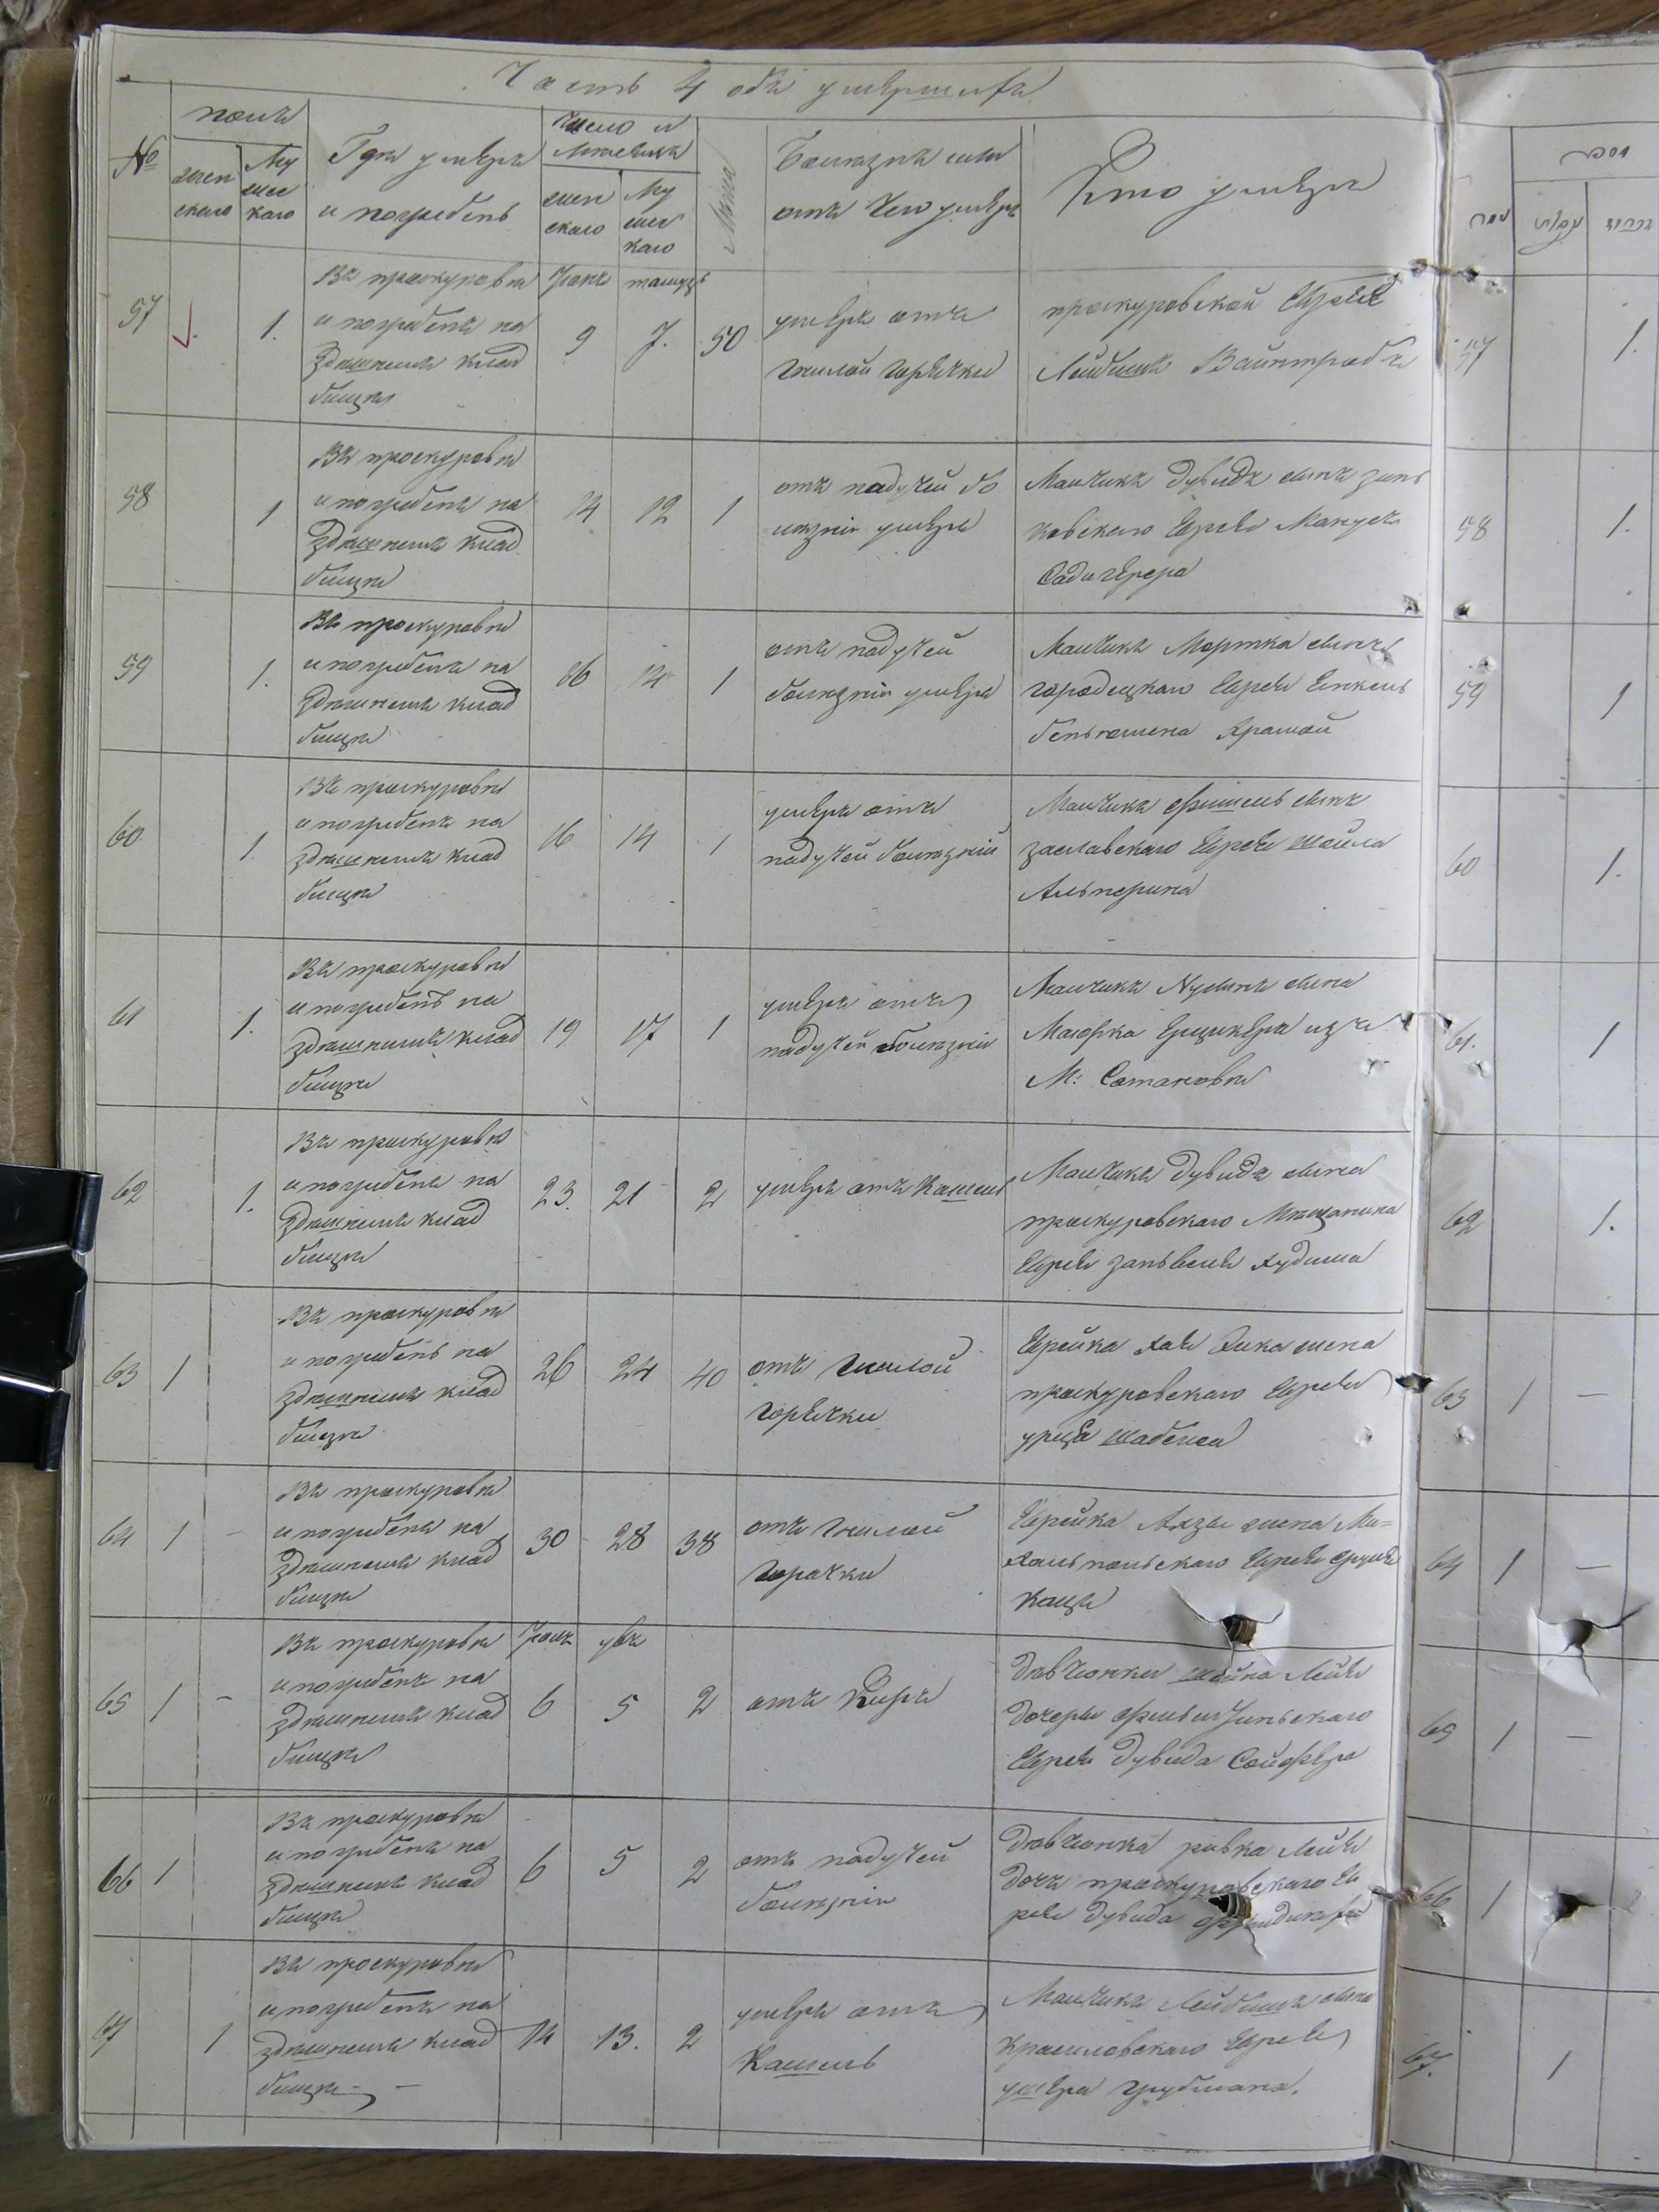 Часть 4 объ умершихъ
№
пола
женскаго
Мужескаго
Гдѣ умеръ и погребенъ
Число и мѣсяцъ
женскаго
Мужескаго
Лѣта
Болезнь или отъ чего умеръ
Кто умеръ
57
1.
Въ проскуровѣ
и погребенъ на
здѣшнемъ клад
бищѣ
Іюнь
9
7.
50
умеръ отъ
гнилой горѣчки
проскуровской Еврей
Лейбишъ Вайнтробъ
58
1
Въ проскуровѣ
и погребенъ на
здѣшнемъ клад
бищѣ
14
12
1
отъ падучей бо
лѣзни умеръ
Мальчикъ Дувидъ сынъ зинь
ковскаго Еврея Мануса
Садигерера
59
1.
Въ проскуровѣ
и погребенъ на
здѣшнемъ клад
бищѣ
16
14
1
отъ падучей
болѣзни умеръ
Мальчикъ Мортка сынъ
городецкаго Еврея Енкель
беньюмена
60
1.
Въ проскуровѣ
и погребенъ на
здѣшнемъ клад
бищѣ
16
14
1
умеръ отъ
падучей болѣзни
Мальчикъ Фишель сынъ
заславскаго Еврея Шойла
Альперина
61
1.
Въ проскуровѣ
и погребенъ на
здѣшнемъ клад
бищѣ
19
17
1
умеръ отъ
падучей болѣзни
Мальчикъ Нусинъ сына
Маюрка изъ
М: Сатановѣ
62
1.
Въ проскуровѣ
и погребенъ на
здѣшнемъ клад
бищѣ
23.
21
2
умеръ отъ Кашель
Мальчикъ Дувидъ сына
проскуровскаго Мѣщанина
Еврея заньвеля
63
1
Въ проскуровѣ
и погребенъ на
здѣшнемъ клад
бищѣ
26
24
40
отъ гнилой
горѣчки
Еврейка Хая жена
проскуровскаго Еврея
64
1
-
Въ проскуровѣ
и погребена на
здѣшнемъ клад
бищѣ
30
28
38
отъ гнилой
горачки
Еврейка жена Ми=
хальпольскаго Еврея
Каца
65
1
-
Въ проскуровѣ
и погребенъ на
здѣшнемъ клад
бищѣ
Іюль
6
5
2
отъ Кира
Дѣвчонки Шейна Лея
дочеры фельштинскаго
Еврея Дувида Сойфера
66
1
Въ проскуровѣ
и погребенъ на
здѣшнемъ клад
бищѣ
6
5
2
отъ падучей
болѣзни
Дѣвчонка ривка Лея
дочъ проскуровскаго Ев
рея Дувида
67
1
Въ проскуровѣ
и погребенъ на
здѣшнемъ клад
бищѣ
14
13.
2
умеръ отъ
Кашель
Мальчикъ Лейбишъ сына
красиловскаго Еврея
ушера грубмана.
57
1.
58
1.
59
1
60
1.
61.
1
62
1.
63
1
—
64
1
—
65
1
—
66
1
67.
1